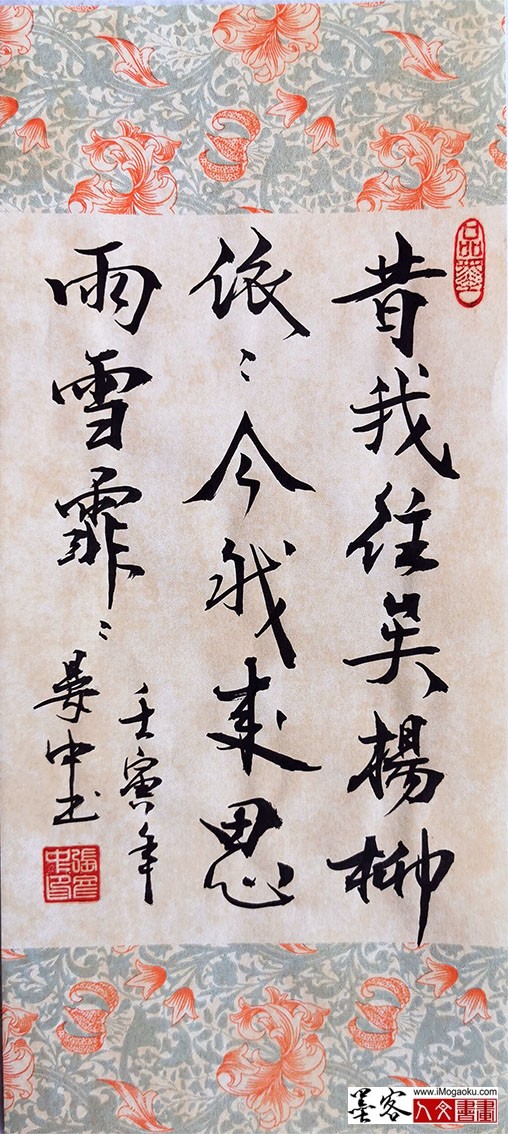 昔我往矣楊柳
依〻今我來思
雨雪霏〻
壬寅年
晏中书
墨客
www.iMogaoku.com
人文書畫